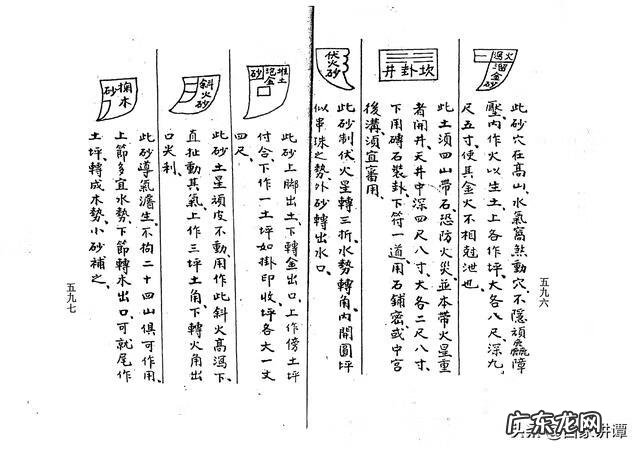 五九六
溜金砂
此砂穴在高山、水氣窩煞動穴、不隱頑贏障
壓內作火以生土、上各作坪、大各八尺、深九
尺五寸、使其金火不相尅泄也、
坎卦井
此土須四山帶石、恐防火災、並本帶火星重
者開井、天井中深四尺八寸、大各二尺八寸、
下用磚石裝卦、下符一道、用石鋪密、或中宮
後溝、須宜審用、
伏火砂
此砂制伏火星、轉三折水勢、轉角內開圓坪
似串珠之勢、外砂轉出水口、
堆土
砂
此砂上脚出土、下轉金出口、上作傍土坪
付合、下作一土坪如掛印、收坪各大一丈
四尺、
斜火砂
此砂土星頑皮不動、用作此斜火高瀉下
直扯動其氣、上作三坪土角、下轉火角出
口尖利、
木砂
此砂導氣生、不拘二十四山俱可作用、
上節多宜水勢、下節轉木出口、可就尾作
土坪、轉成木勢、小砂補之、
五九七
广东龙网
头条@百家讲谭